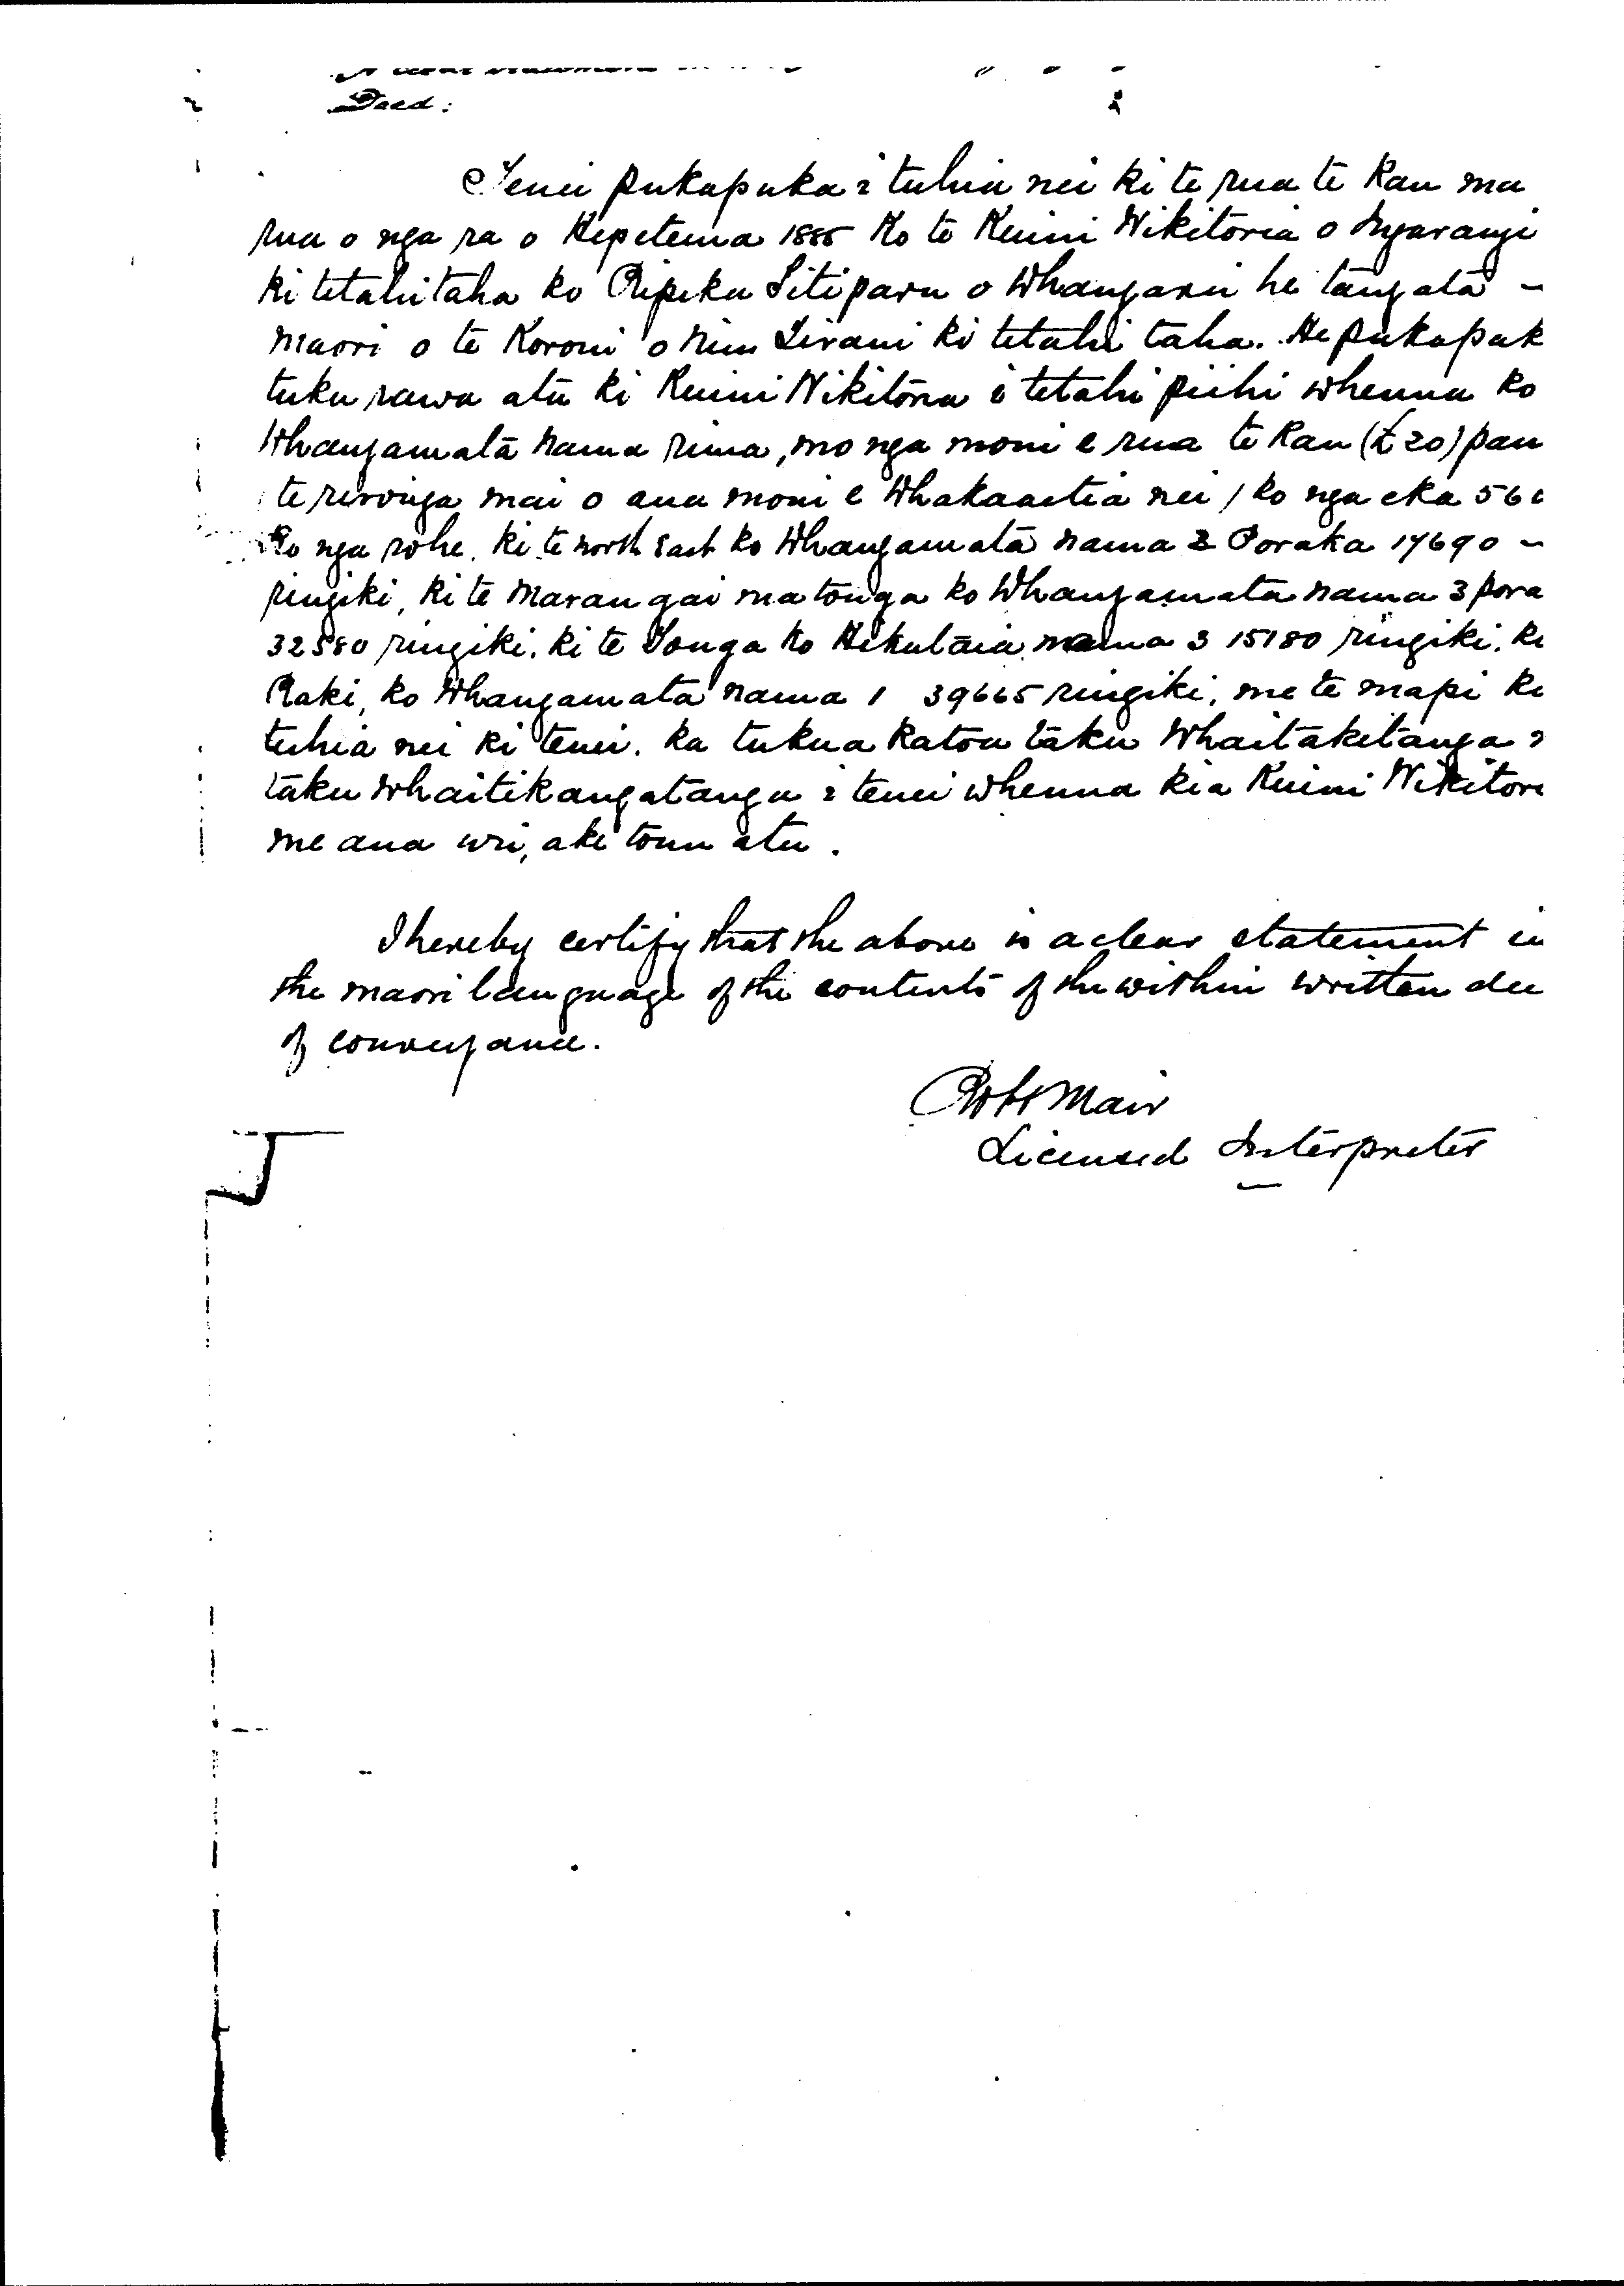 Deed:
Tenei pukapuka i tuhia nei ki te rua te kau ma
rua o nga ra o Hepetema 1885 Ko te Kuini Wikitoria o Ingarangi
ki tetahi taha ko Ripeka Titiparu o Whangarei he tangata -
maori o te Koroni o Niu Tirani ki tetahi taha. He pukapuk
tuku rawa atu ki Kuini Wikitoria i tetahi piihi whenua ko
Whangamata nama rima, mo nga moni e rua te Kau (£20) pau
te rironga mai o aua moni e whakaaetia nei / ko nga eka 56
Ko nga rohe. ki te north East ko Whangamata nama 2 Poraka 17690 -
ringiki, ki te Marangai ma tonga ko Whangamata nama 3 pora
32580 ringiki. ki te Tonga ko Hikutaia nama 3 15180 ringiki. ki
Raki, ko Whangamata nama 1 39665 ringiki, me te mapi ki
tuhia nei ki tenei. ka tukua katoa taku Whaitaketanga i
taku whaitikangatanga i tenei whenua kia Kuini Wikitori
me ana uri, ake tonu atu.
I hereby certify that the above is a clear statement in
the maori language of the contents of the within written dee
of conveyance.
Mair
Licensed Interpreter